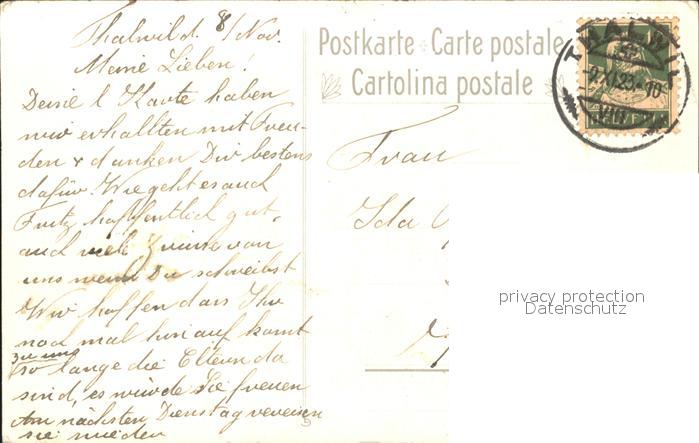 Thalwil d. 8/Nov.
Meine Lieben!
Deine l Karte haben
wir erhallten mit Freu-
den & danken Dir bestens
dafür. Wie geht es auch
Fritz hoffentlich gut.
auch viele von
uns wenn Du schreibst
Wir hoffen dass Ihr
noch mal hin auf komt
zu uns
so lange die Eltern da
sind, es würde Sie freuen
Am nächsten Dienstag vereisen
sie wieder
Postkarte Carte postale
Cartolina postale
THALWIL
-9.XI.23.-10
VIII
Frau
Ida
privacy protection
Datenschutz